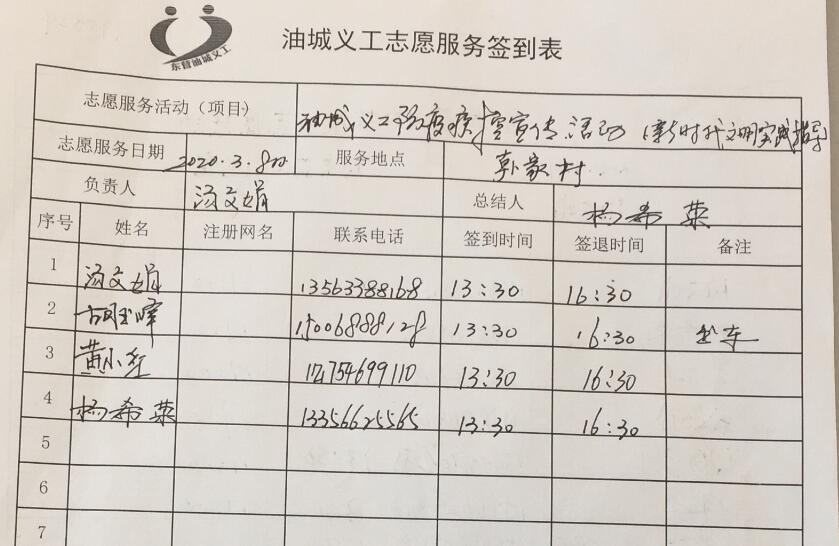 东营油城义工
油城义工志愿服务签到表
志愿服务活动（项目） 油城义工防疫疾控宣传活动（新时代文明实践指导
志愿服务日期 2020.3.8日 服务地点 郭家村
负责人 汤文娟 总结人 杨希荣
序号 姓名 注册网名 联系电话 签到时间 签退时间 备注
1 汤文娟 13563388168 13:30 16:30
2 胡玉峰 15006888128 13:30 16:30 出车
3 黄小红 754699110 13:30 16:30
4 杨希荣 13356625565 13:30 16:30
5
6
7